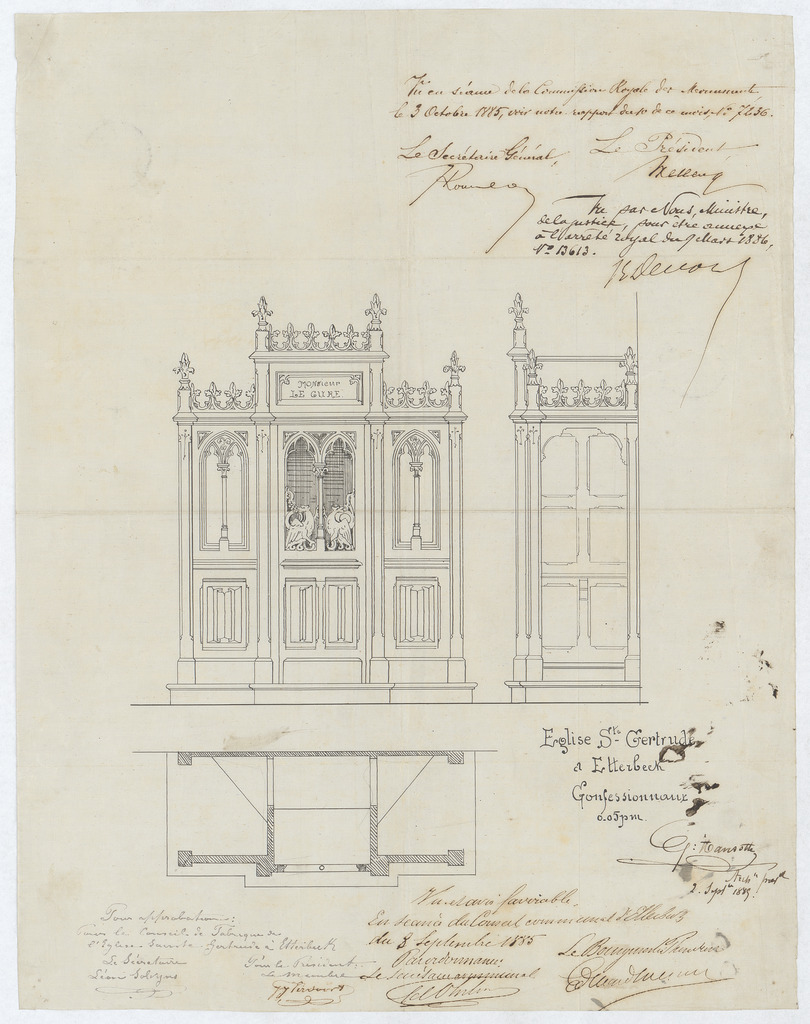 Vu en séance de la Commission Royale des Monuments
le 3 Octobre 1885, voir notre rapport du de ce mois, No 7436.
Le Secrétaire Général,
Le Président
Vu par Nous, Ministre,
de la justice, pour être annexé
à l'arrêté royal du 9 Mars 1886,
No 13613.
Monsieur
LE CURE
Eglise Ste Gertrude
à Etterbeek
Confessionnaux
0.05 p m.
G: Hansotte
2. Septre 1885.
Vu et avis favorable.
En séance du Conseil communal d'Etterbeek
du 8 Septembre 1885
Par ordonnance
Le Secrétaire communal
Le Bourgmestre Président
Pour approbation:
Pour le Conseil de Fabrique de
l'Eglise Sainte Gertrude à Etterbeek
Le Secrétaire
Léon
Pour le Président,
Le membre